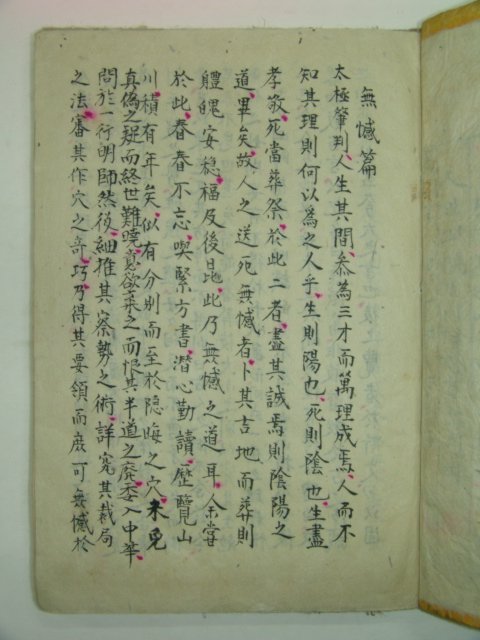 無憾篇
太極肇判人生其間叅為三才而萬理成焉人而不
知其理則何以為之人乎生則陽也死則陰也生盡
孝敬死當葬祭於此二者盡其誠焉則陰陽之
道畢矣故人之送死無憾者卜其吉地而葬則
軆魄安稳福及後昆此乃無憾之道耳余嘗
於此眷眷不忘喫緊方書潜心勤讀歷覽山
川積有年矣似有分别而至於隐晦之穴未免
真偽之疑而終世難曉竟欲棄之而恨其半道之廢委入中華
問於一行明師然後細推其察勢之術詳究其裁局
之法審其作穴之竒巧乃得其要領而庶可無憾於